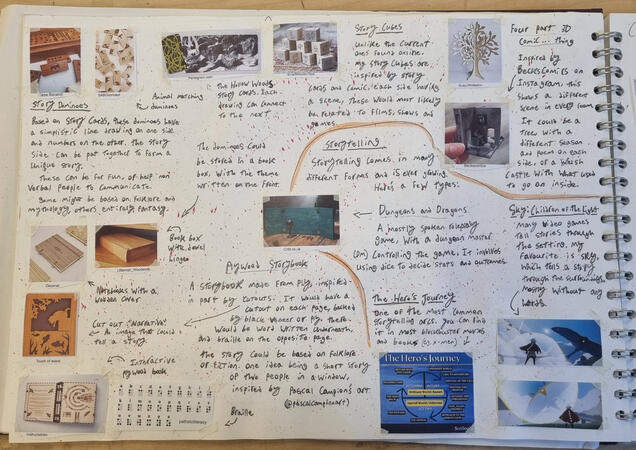 Story Dominoes
Based on Story Cards, these dominoes have
a simplistic line drawing on one side
and numbers on the other. the story
side can be put together to form a
unique story.
These can be for fun, or help non
Verbal people to communicate.
Game might be based on folklore and
mythology, others entirely fantasy.
Animal matching
dominoes
The Hollow Woods
Story Cards. Each
drawing can connect
to the next
The dominoes could
be stored in a book
box, with the theme
written on the front.
Story Cubes
Unlike the current
ones found online.
my story cubes are
inspired by story
cards and comic, each side having
a scene, these would most likely
be related to films, shows and
games.
Four part 3D
Comic... thing
Inspired by
Comics on
Instagram, this
shows a different
scene in every room
It could be a
tree with a
different season
and poem on each
side, or a Welsh
Castle with what used
to go on inside.
Storytelling
Storytelling comes in many
different forms and is ever growing.
Heres a few types:
Dungeons and Dragons.
A mostly spoken roleplay
game. With a dungeon master
(DM) controlling the game. It involves
using dice to decide stats and outcomes.
The Hero's Journey
One of the most common
storytelling arcs. you can find
it in most blockbuster movies
and books (eg. x-men)
The Hero's Journey
Sky: Children of the Light
Many video games
tell stories through
the setting. My
favourite is sky,
which tells a story
through the surroundings
mostly without any
words.
Book box
with
hinge
Notebooks with a
wooden cover
Cut out 'Narrative'
An image that could
tell a story.
Touch of wood
Interactive
plywood book
Plywood Storybook
A storybook made from ply, inspired
in part by cutouts. It would have a
cutout on each page, backed
by black veneer or ply. there
would be word written underneath
and braille on the opposite page.
the story could be based on folklore
or fiction. one idea being a short story
of two people in a window,
inspired by Pascal Campion's art
(@pascalcampionart)
Braille
pathstoliteracy
Instructables